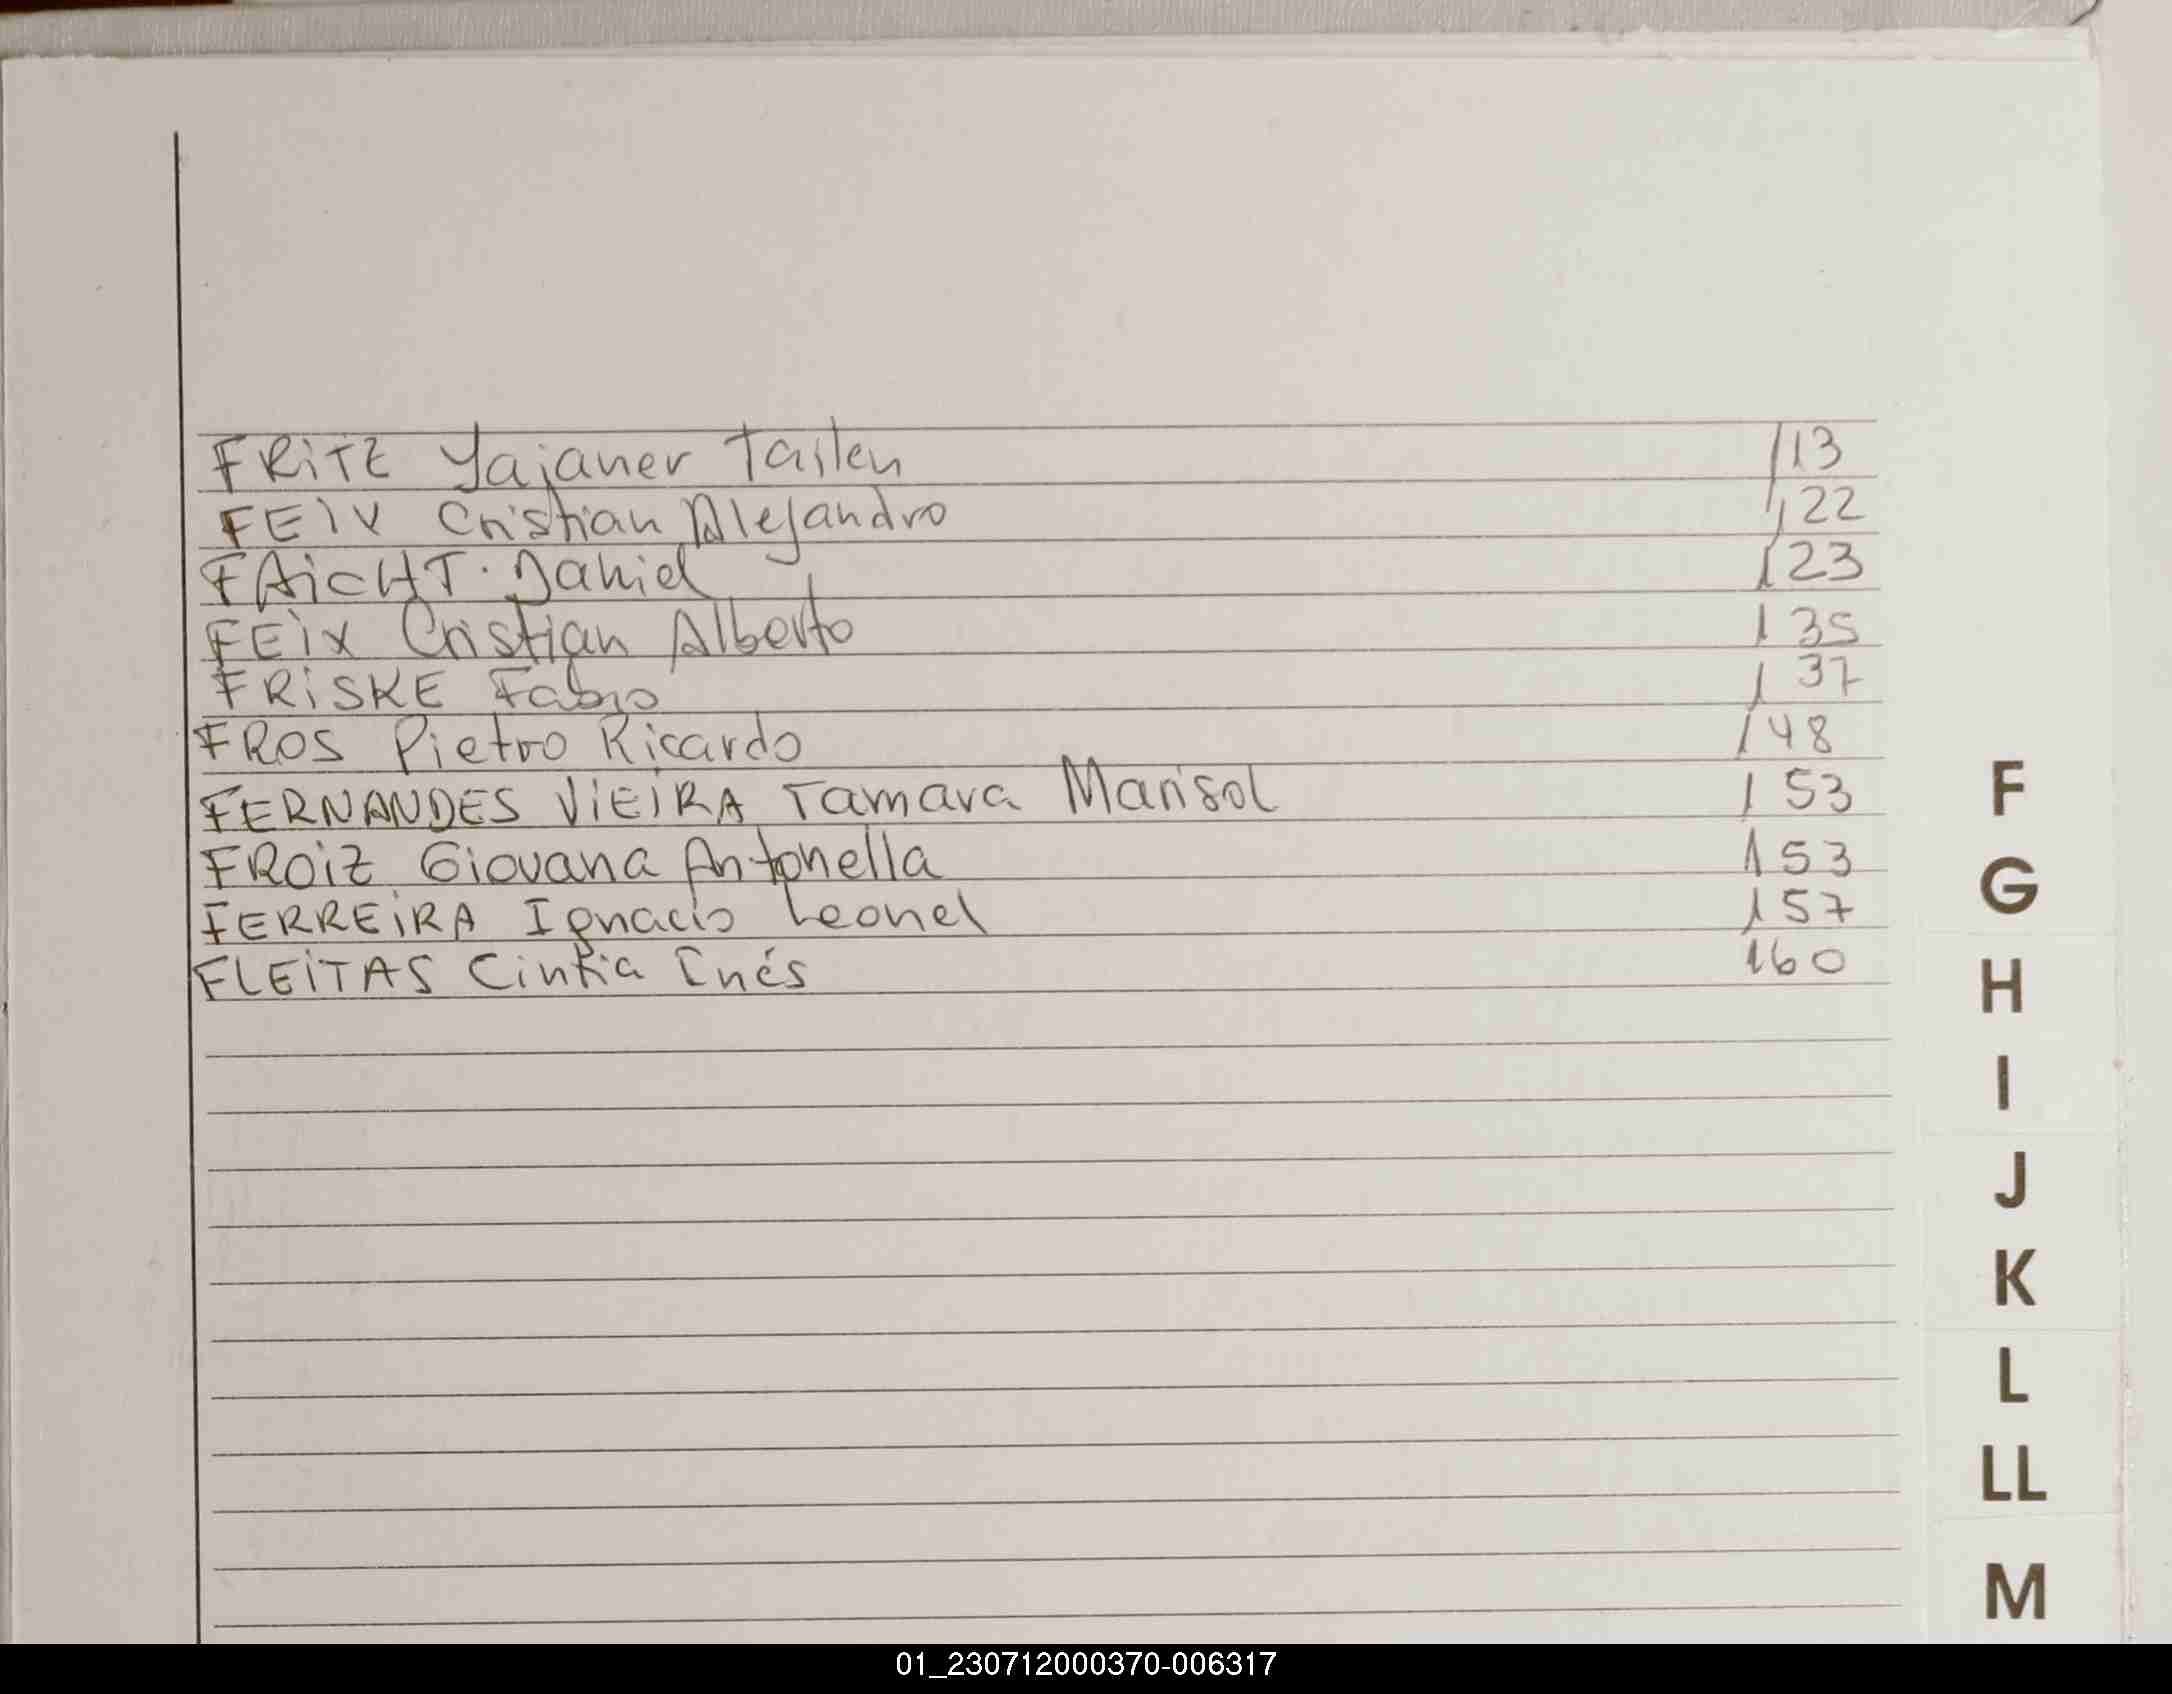 FRITZ Yajaner Tailen 113
FEIX Cristian Alejandro 122
FAICHT. Daniel 123
FEIX Cristian Alberto 135
FRISKE Fabio 137
FROS Pietro Ricardo 148
FERNANDES VIEIRA Tamara Marisol 153
FROIZ Giovana Antonella 153
FERREIRA Ignacio Leonel 157
FLEITAS Cintia Inés 160
F
G
H
I
J
K
L
LL
M
01_230712000370-006317